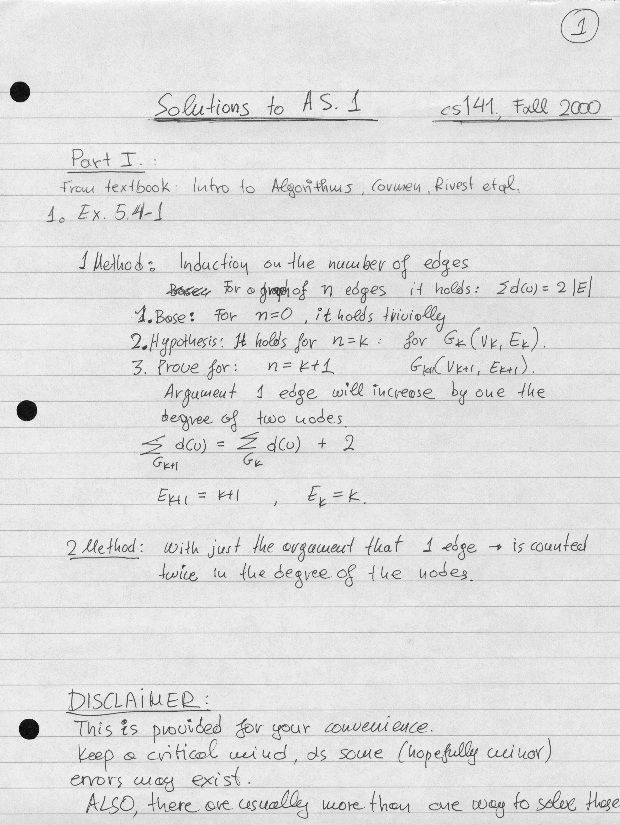 1
Solutions to AS. 1 cs141, Fall 2000
Part I. :
From textbook: Intro to Algorithms, Cormen, Rivest etal.
1. Ex. 5.4-1
1 Method: Induction on the number of edges
For a graph of n edges it holds: Σd(v) = 2|E|
1. Base: For n=0, it holds trivially
2. Hypothesis: It holds for n=k : for Gk (Vk, Ek).
3. Prove for: n = k+1 Gk+1(Vk+1, Ek+1).
Argument 1 edge will increase by one the
degree of two nodes.
Σ d(v) = Σ d(v) + 2
Gk+1 Gk
Ek+1 = k+1 , Ek = k.
2 Method: with just the argument that 1 edge → is counted
twice in the degree of the nodes.
DISCLAIMER:
This is provided for your convenience.
Keep a critical mind, as some (hopefully minor)
errors may exist.
ALSO, there are usually more than one way to solve those